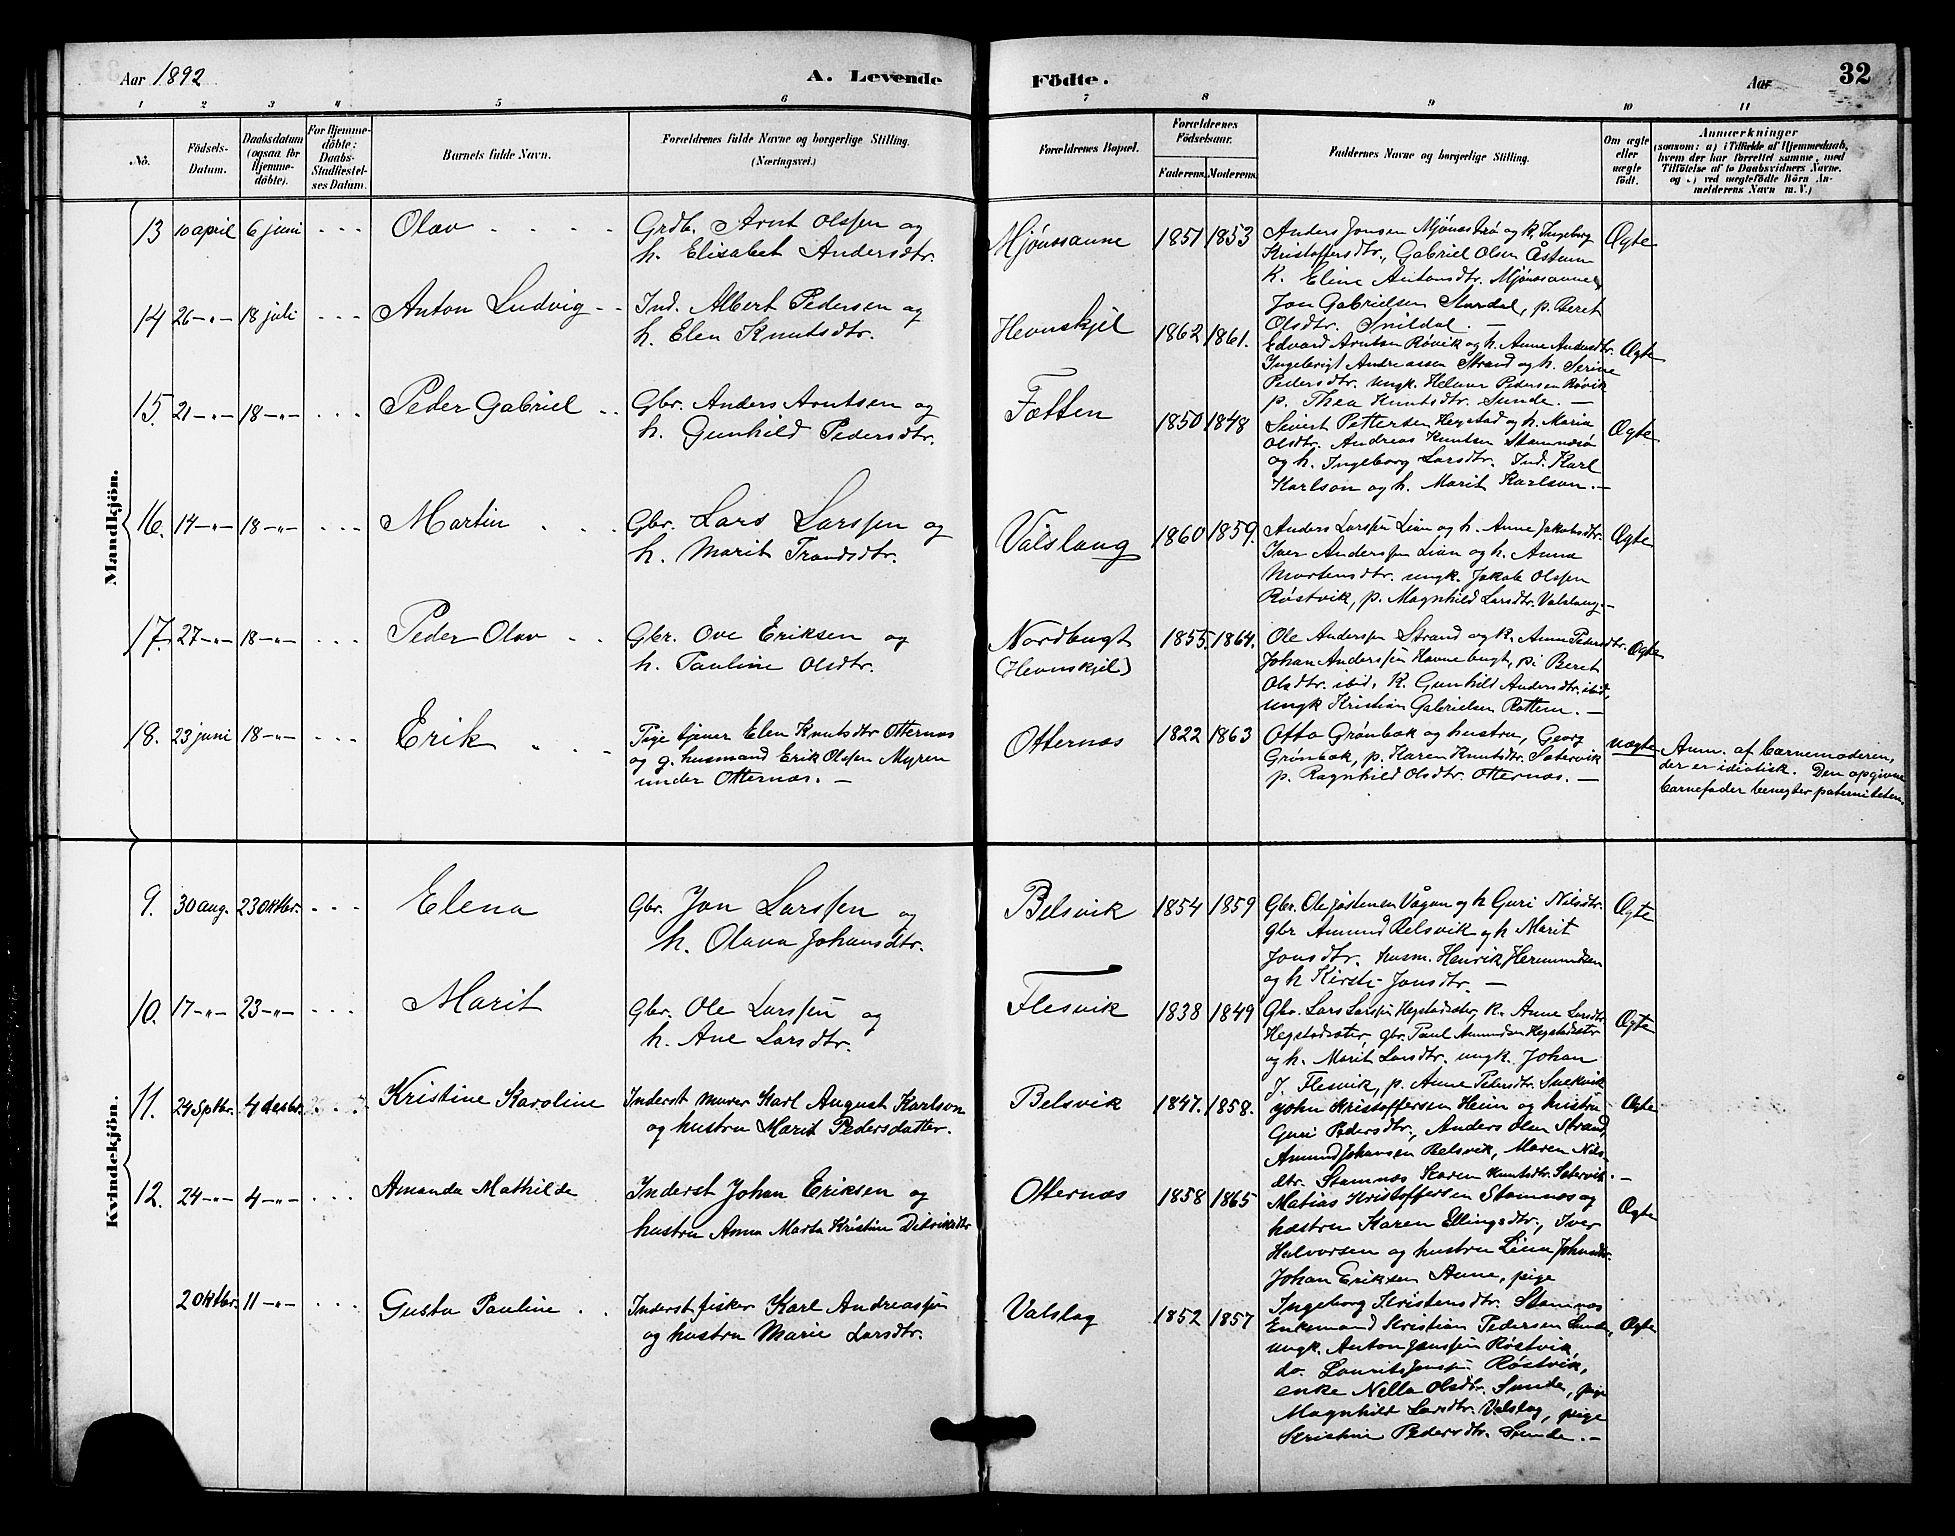 Aar 1892
A. Levende
Födte.
Aar
32
1 2 3 4 5 6 7 8 9 10 11
No.
Födsels-
Datum.
Daabsdatum
(ogsaa for
Hjemme-
döbte).
For Hjemme-
döbte:
Daabs-
Stadfæstel-
ses Datum.
Barnets fulde Navn.
Forældrenes fulde Navne og borgerlige Stilling.
(Næringsvei.)
Forældrenes Bopæl.
Forældrenes
Födselsaar.
Faderens.
Moderens.
Faddernes Navne og borgerlige Stilling.
Om ægte
eller
uægte
födt.
Anmærkninger
(saasom: a) i Tilfælde af Hjemmedaab,
hvem der har forrettet samme, med
Tilföielse af to Daabsvidners Navne.
og b) ved uægtefödte Börn An-
melderens Navn m. V.)
Mandkjön.
13 10 april 6 juni - - - Olav
Grdb. Arnt Olssen og
h. Elisabet Andersdtr.
Mjönssaune 1851 1853
Anders Jonsen Mjönesbrö og k, Ingeborg
Kristoffersdtr., Gabriel Olsen Åstum
K. Eline Antonsdtr. Mjönssaune,
Jon Gabrielsen Stardal, p. Beret
Olsdtr. Snildal. -
Ægte
14 26 -"- 18 juli - - - Anton Ludvig - -
Ind. Albert Pedersen og
h. Elen Knutsdtr.
Hevnskjel 1862 1861.
Edvard Arntsen Røvik og h. Anne Andersdtr.
Ingebrigt Andreassen Strand og h. Serine
Pedersdtr. ungk. Helmer Pedersen Røvik
p. Thea Knutsdtr. Sunde. -
Ægte
15. 21 -"- 18 -"- - - - Peder Gabriel
Gbr. Anders Arntsen og
h. Gunhild Pedersdtr.
Fætten 1850 1848
Sivert Pettersen Hegstad og h. Maria
Olsdtr. Andreas Knutsen Stamnesø
og h. Ingeborg Larsdtr. Ind. Karl
Karlson og h. Marit Karlson. -
Ægte
16. 14 -"- 18 -"- - - - Martin
Gbr. Lars Larssen og
h. Marit Trondsdtr.
Valslaug 1860 1859.
Anders Larssen Lian og h. Anne Jakobsdtr.
Iver Anderssen Lian og h. Anna
Mortensdtr. ungk. Jakob Olssen
Røstvik, p. Magnhild Larsdtr. Valslaug. -
Ægte
17. 27 -"- 18 -"- - - - Peder Olav
Gbr. Ove Eriksen og
h. Pauline Olsdtr.
Nordbugt
(Hevnskjel) 1855. 1864.
Ole Anderssen Strand og k. Anne Petersdtr.
Johan Anderssen Havnebugt, pi Beret
Olsdtr. ibid, K. Gunhild Andersdtr. ibid,
ungk Kristian Gabrielsen Rottem. -
Ægte
18. 23 juni 18 -"- - - - Erik
Pige tjener Elen Knutsdtr Otternæs
og g. husmand Erik Olssen Myren
under Otternæs. -
Otternæs 1822 1863
Otto Grønbæk og hustru, Georg
Grønbæk, p. Karen Knutsdtr. Sætervik
p. Ragnhild Olsdtr. Otternæs. -
uægte
Anm. af barnemoderen,
der er idiotisk. Den opgivne
barnefader benegter paterniteten.
Kvindekjön.
9. 30 aug. 23 Oktbr. - - - Elena
Gbr. Jon Larssen og
h. Olava Johansdtr.
Belsvik 1854 1859
Gbr. Ole Jøstensen Vågan og h Guri Nilsdtr.
Gbr Amund Belsvik og h Marit
Jonsdtr. husm. Henrik Hermundsen
og h Kirsti Jonsdtr. -
Ægte
10. 17 -"- 23 -"- - - - Marit
Gbr. Ole Larssen og
h. Ane Larsdtr.
Flesvik 1838 1849
Gbr. Lars Larssen Hegstadsæter, k. Anne Larsdtr
Hegstadsæter, gbr. Paul Amundsen Hegstadsæter
og h. Marit Larsdtr. ungk. Johan
J. Flesvik, p. Anne Petersdtr. Snekvik
Ægte
11. 24 Sptbr. 4 desbr. Kristine Karoline
Inderst murer Karl August Karlson
og hustru Marit Pedersdatter.
Belsvik 1847. 1858.
John Kristoffersen Heim og hustru
Guri Pedersdtr., Anders Olsen Strand,
Amund Johansen Belsvik, Maren Nils-
dtr. Stamnæs Karen Knutsdtr. Sætervik. -
Ægte
12. 24 -"- 4 -"- - - - Amanda Mathilde
Inderst Johan Eriksen og
hustru Anna Marta Kristine Didriksdtr
Otternæs 1858 1865
Matias Kristoffersen Stamnæs og
hustru Karen Ellingsdtr., Iver
Halvorsen og hustru Lina Johnsdtr.
Johan Eriksen Aune, pige
Ingeborg Kristensdtr. Stamnæs
Ægte
2 Oktbr. 11 -"- - - - Gusta Pauline
Inderst fisker Karl Andreassen
og hustru Marie Larsdtr.
Valslag 1852 1857
Enkemand Kristian Pedersen Sunde,
ungk. Anton Jenssen Røstvik,
do. Laurits Jenssen Røstvik,
enke Nella Olsdtr. Sunde, pige
Magnhild Larsdtr. Valslag, pige
Kristine Pedersdtr. Sunde. -
Ægte